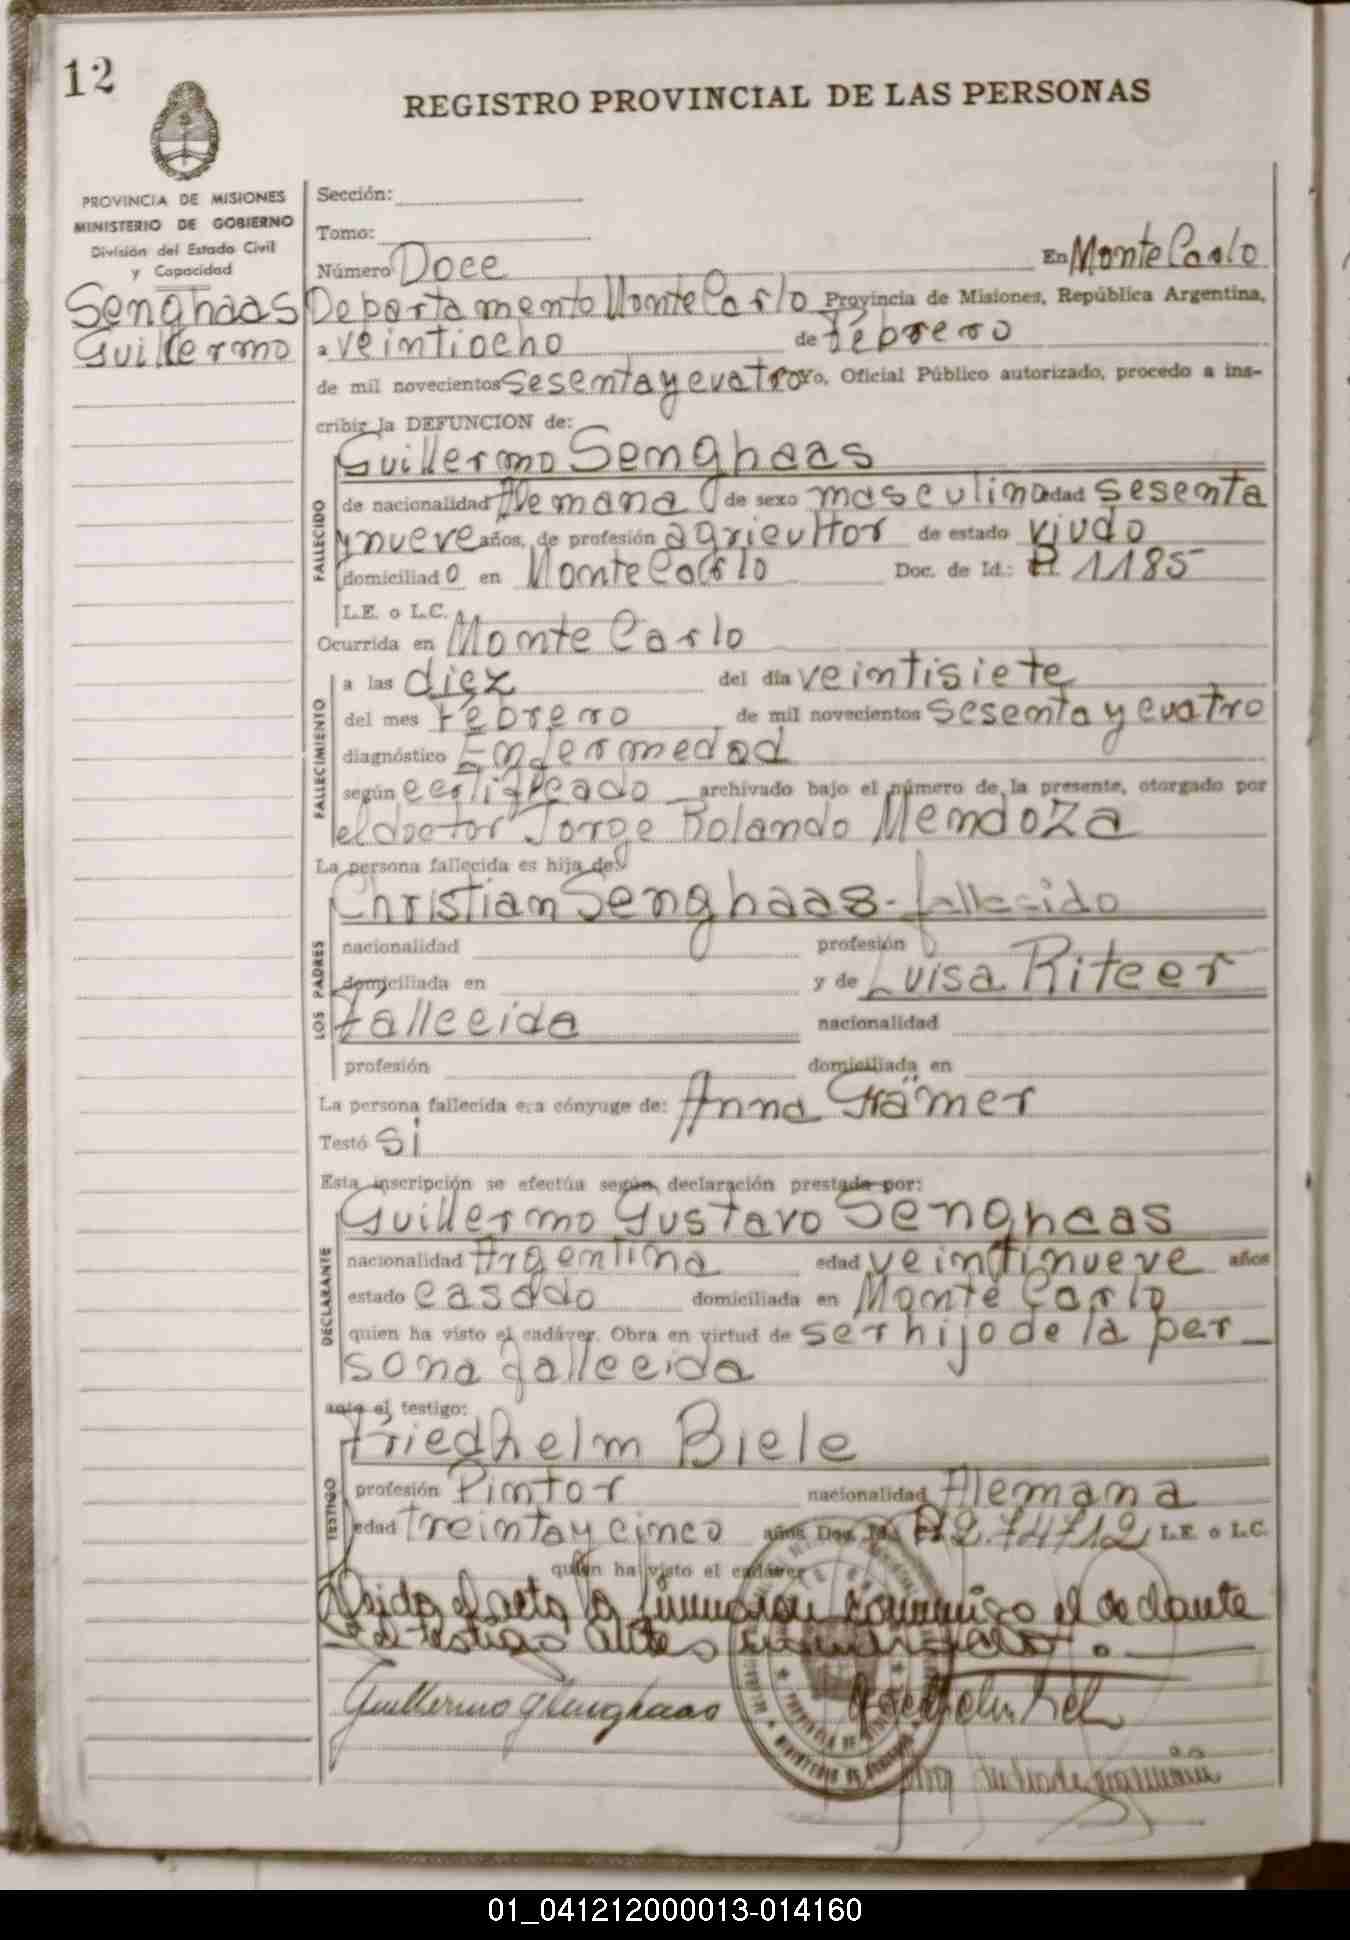 12
REGISTRO PROVINCIAL DE LAS PERSONAS
PROVINCIA DE MISIONES
MINISTERIO DE GOBIERNO
División del Estado Civil
y Capacidad
Senghaas
Guillermo
Sección:
Tomo:
Número Doce En Monte Carlo
Departamento Monte Carlo Provincia de Misiones, República Argentina,
a veintiocho de febrero
de mil novecientos sesenta y cuatro yo, Oficial Público autorizado, procedo a ins-
cribir la DEFUNCION de:
Guillermo Senghaas
FALLECIDO
de nacionalidad Alemana de sexo masculino edad sesenta
y nueve años, de profesión agricultor de estado viudo
domiciliado en Monte Carlo Doc. de Id.: 1185
L.E. o L.C.
Ocurrida en Monte Carlo
FALLECIMIENTO
a las diez del día veintisiete
del mes febrero de mil novecientos sesenta y cuatro
diagnóstico Enfermedad
según certificado archivado bajo el número de la presente, otorgado por
el doctor Jorge Rolando Mendoza
La persona fallecida es hija de:
Christian Senghaas - fallecido
LOS PADRES
nacionalidad profesión
domiciliada en y de Luisa Riteer
fallecida nacionalidad
profesión domiciliada en
La persona fallecida era cónyuge de: Anna Krämer
Testó si
Esta inscripción se efectúa según declaración prestada por:
Guillermo Gustavo Senghaas
DECLARANTE
nacionalidad Argentina edad veintinueve años
estado casado domiciliada en Monte Carlo
quien ha visto el cadáver. Obra en virtud de ser hijo de la per_
sona fallecida
ante el testigo:
Friedhelm Biele
TESTIGO
profesión Pintor nacionalidad Alemana
edad treinta y cinco años Doc. Id. 2.74712 L.E. o L.C.
quien ha visto el cadáver
Leida el acta la firmaron conmigo el declarante
Guillermo G Senghaas
01_041212000013-014160